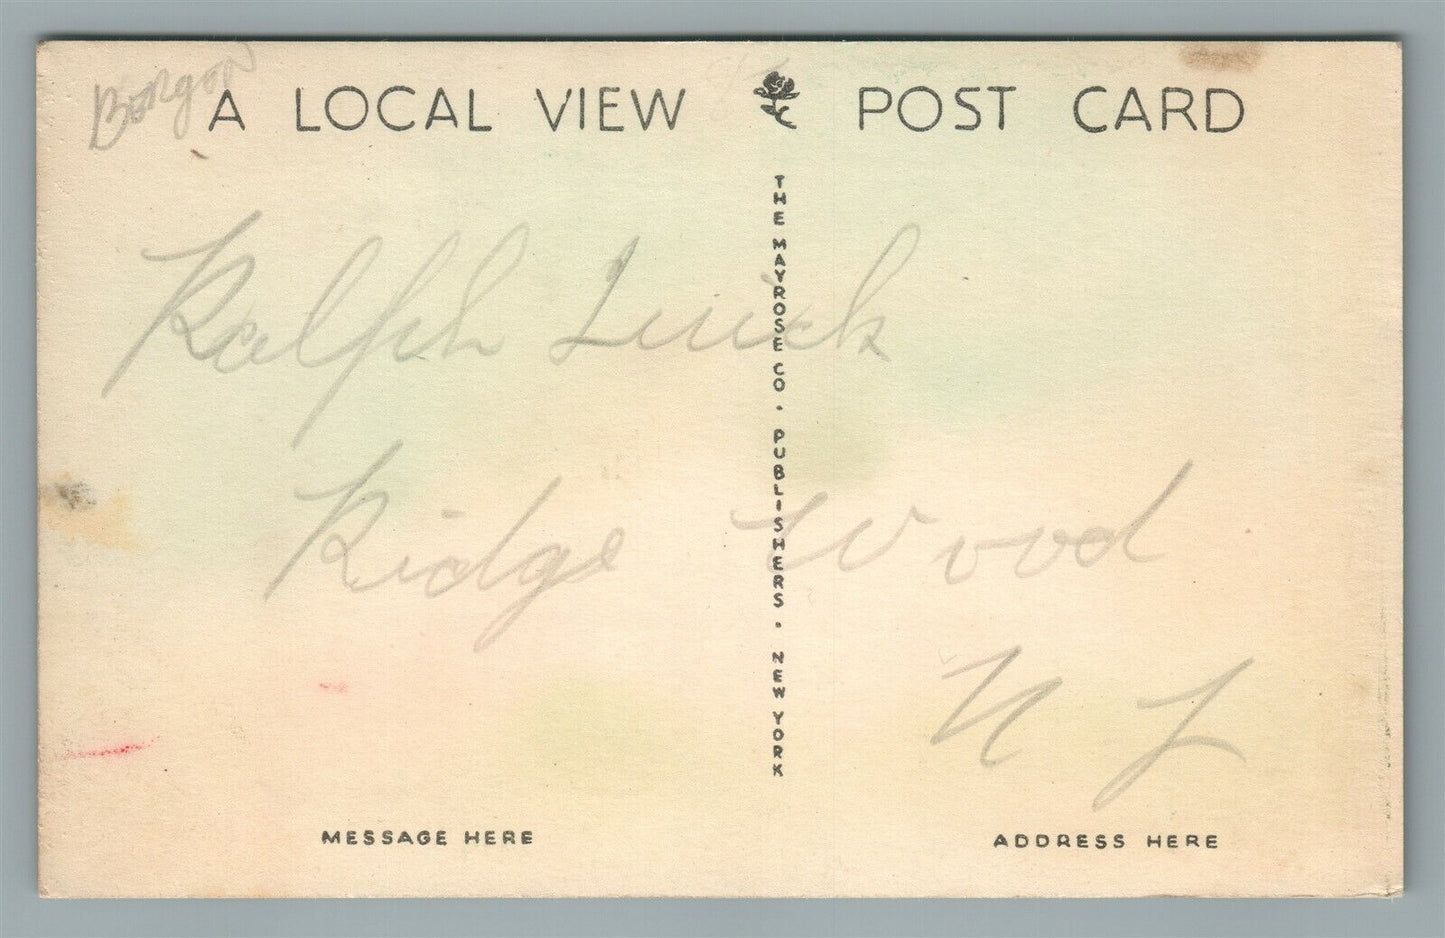 Bergen
A LOCAL VIEW POST CARD
THE MAYROSE CO. PUBLISHERS. NEW YORK
Ralph Quick
Ridge Wood
N J
MESSAGE HERE
ADDRESS HERE